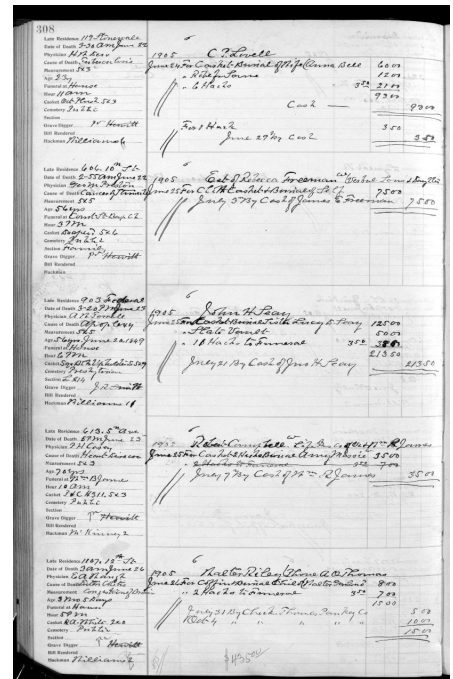 308
Late Residence 119 Stonewall
Date of Death 3-30 am June 22
Physician H.P. Dew
Cause of Death Tuberculosis
Measurement 5x3
Age 23 yrs
Funeral at House
Hour 11 am
Casket Oct Plush 5x3
Cemetery Public
Section
Grave Digger Pd Hewitt
Bill Rendered
Hackman Williams 6
1905 C. P. Lovell
June 24 For Casket & Burial of Wife (Anna Bell 60 00
" Robe for Same 12 00
" 6 Hacks 3 50 21 00
93 00
Cash — 93 00
For 1 Hack 3 50
June 29 By Cash 3 50
6
Late Residence 606. 10th St
Date of Death 2-55 am June 22
Physician Geo. M. Preston
Cause of Death Cancer of Stomach
Measurement 5x5
Age 56 yrs
Funeral at Court St Bap Ch
Hour 3 PM
Casket 5x6
Cemetery Public
Section Family
Grave Digger Pd Hewitt
Bill Rendered
Hackman
1905 Est of Rebecca Freeman Sons & Daughter
June 25 For Cloth Casket & Burial of Self 75 00
July 3 By Cash of James E Freeman 75 00
6
Late Residence 903 Federal
Date of Death 3-20 PM June 23
Physician
Cause of Death Apoplexy
Measurement 5x5
Age 56 yrs June 20 1849
Funeral at House
Hour 6 PM
Casket
Cemetery Presbyterian
Section
Grave Digger J.D. Smith
Bill Rendered
Hackman Williams 11
1905 John H Seay
June 25 For Casket & Burial Sister Lucy E Seay 125 00
" Slate Vault 50 00
" 11 Hacks to Funeral 3 50
213 50
July 21 By Cash of Jno H Seay 213 50
6
Late Residence 613. 5th Ave
Date of Death 5 PM June 23
Physician P H Casey
Cause of Death Heart Disease
Measurement 5x3
Age 70 yrs
Funeral at Wm R James
Hour 10 am
Casket 5x3
Cemetery Public
Section
Grave Digger Pd Hewitt
Bill Rendered
Hackman McKinney 2
1905 Robert Campbell Wm R James
June 25 For Casket & 2 Hacks & Burial Amy Moore 35 00
" 2 Hacks to Funeral 3 50 7 00
July 7 By Cash of Wm R James 35 00
6
Late Residence 1107. 12th St
Date of Death 3 am June 26
Physician
Cause of Death
Measurement Congestion of Brain
Age 3 Mos 5 Days
Funeral at House
Hour 5 PM
Casket White 2x0
Cemetery Public
Section
Grave Digger Pd Hewitt
Bill Rendered
Hackman Williams 2
1905 Walter Riley / Phone A O Thomas
June 26 For Coffin & Burial Child of Walter 8 00
" 2 Hacks to Funeral 3 50 7 00
15 00
July 31 By Check Thomas Co 5 00
Oct 4 " " " " 10 00
15 00
$435.00